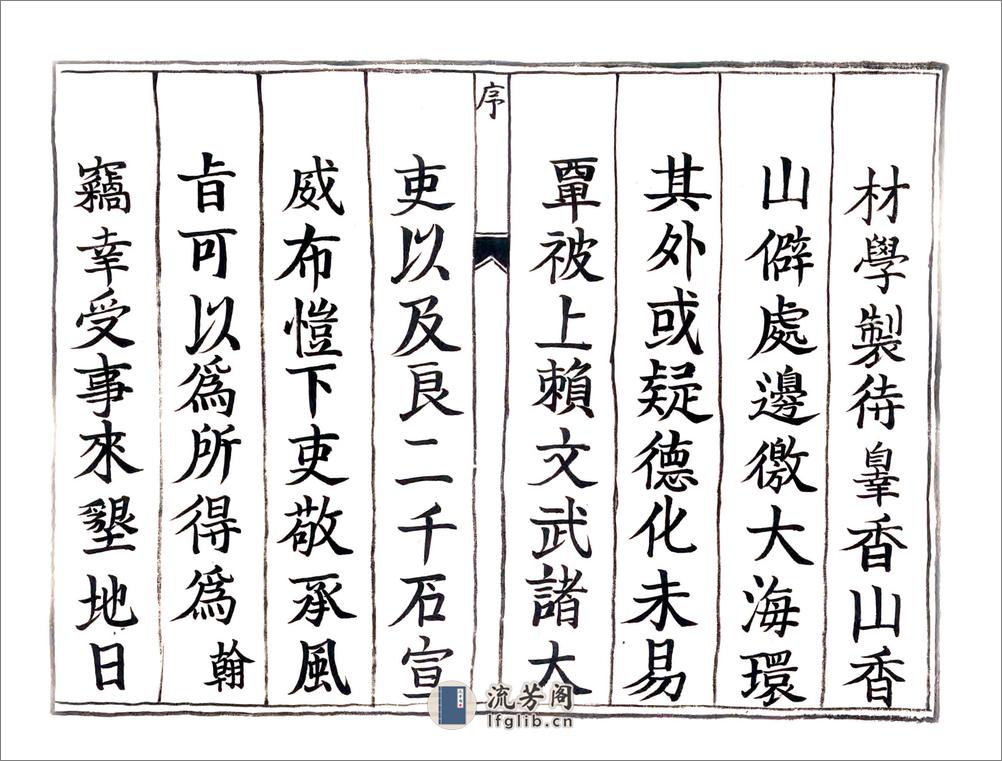 材學製待辠香山香
山僻處邊徼大海環
其外或疑德化未易
覃被上賴文武諸大
序
吏以及良二千石宣
威布愷下吏敬承風
旨可以爲所得爲翰
竊幸受事來墾地日
流芳阁
lfglib.cn